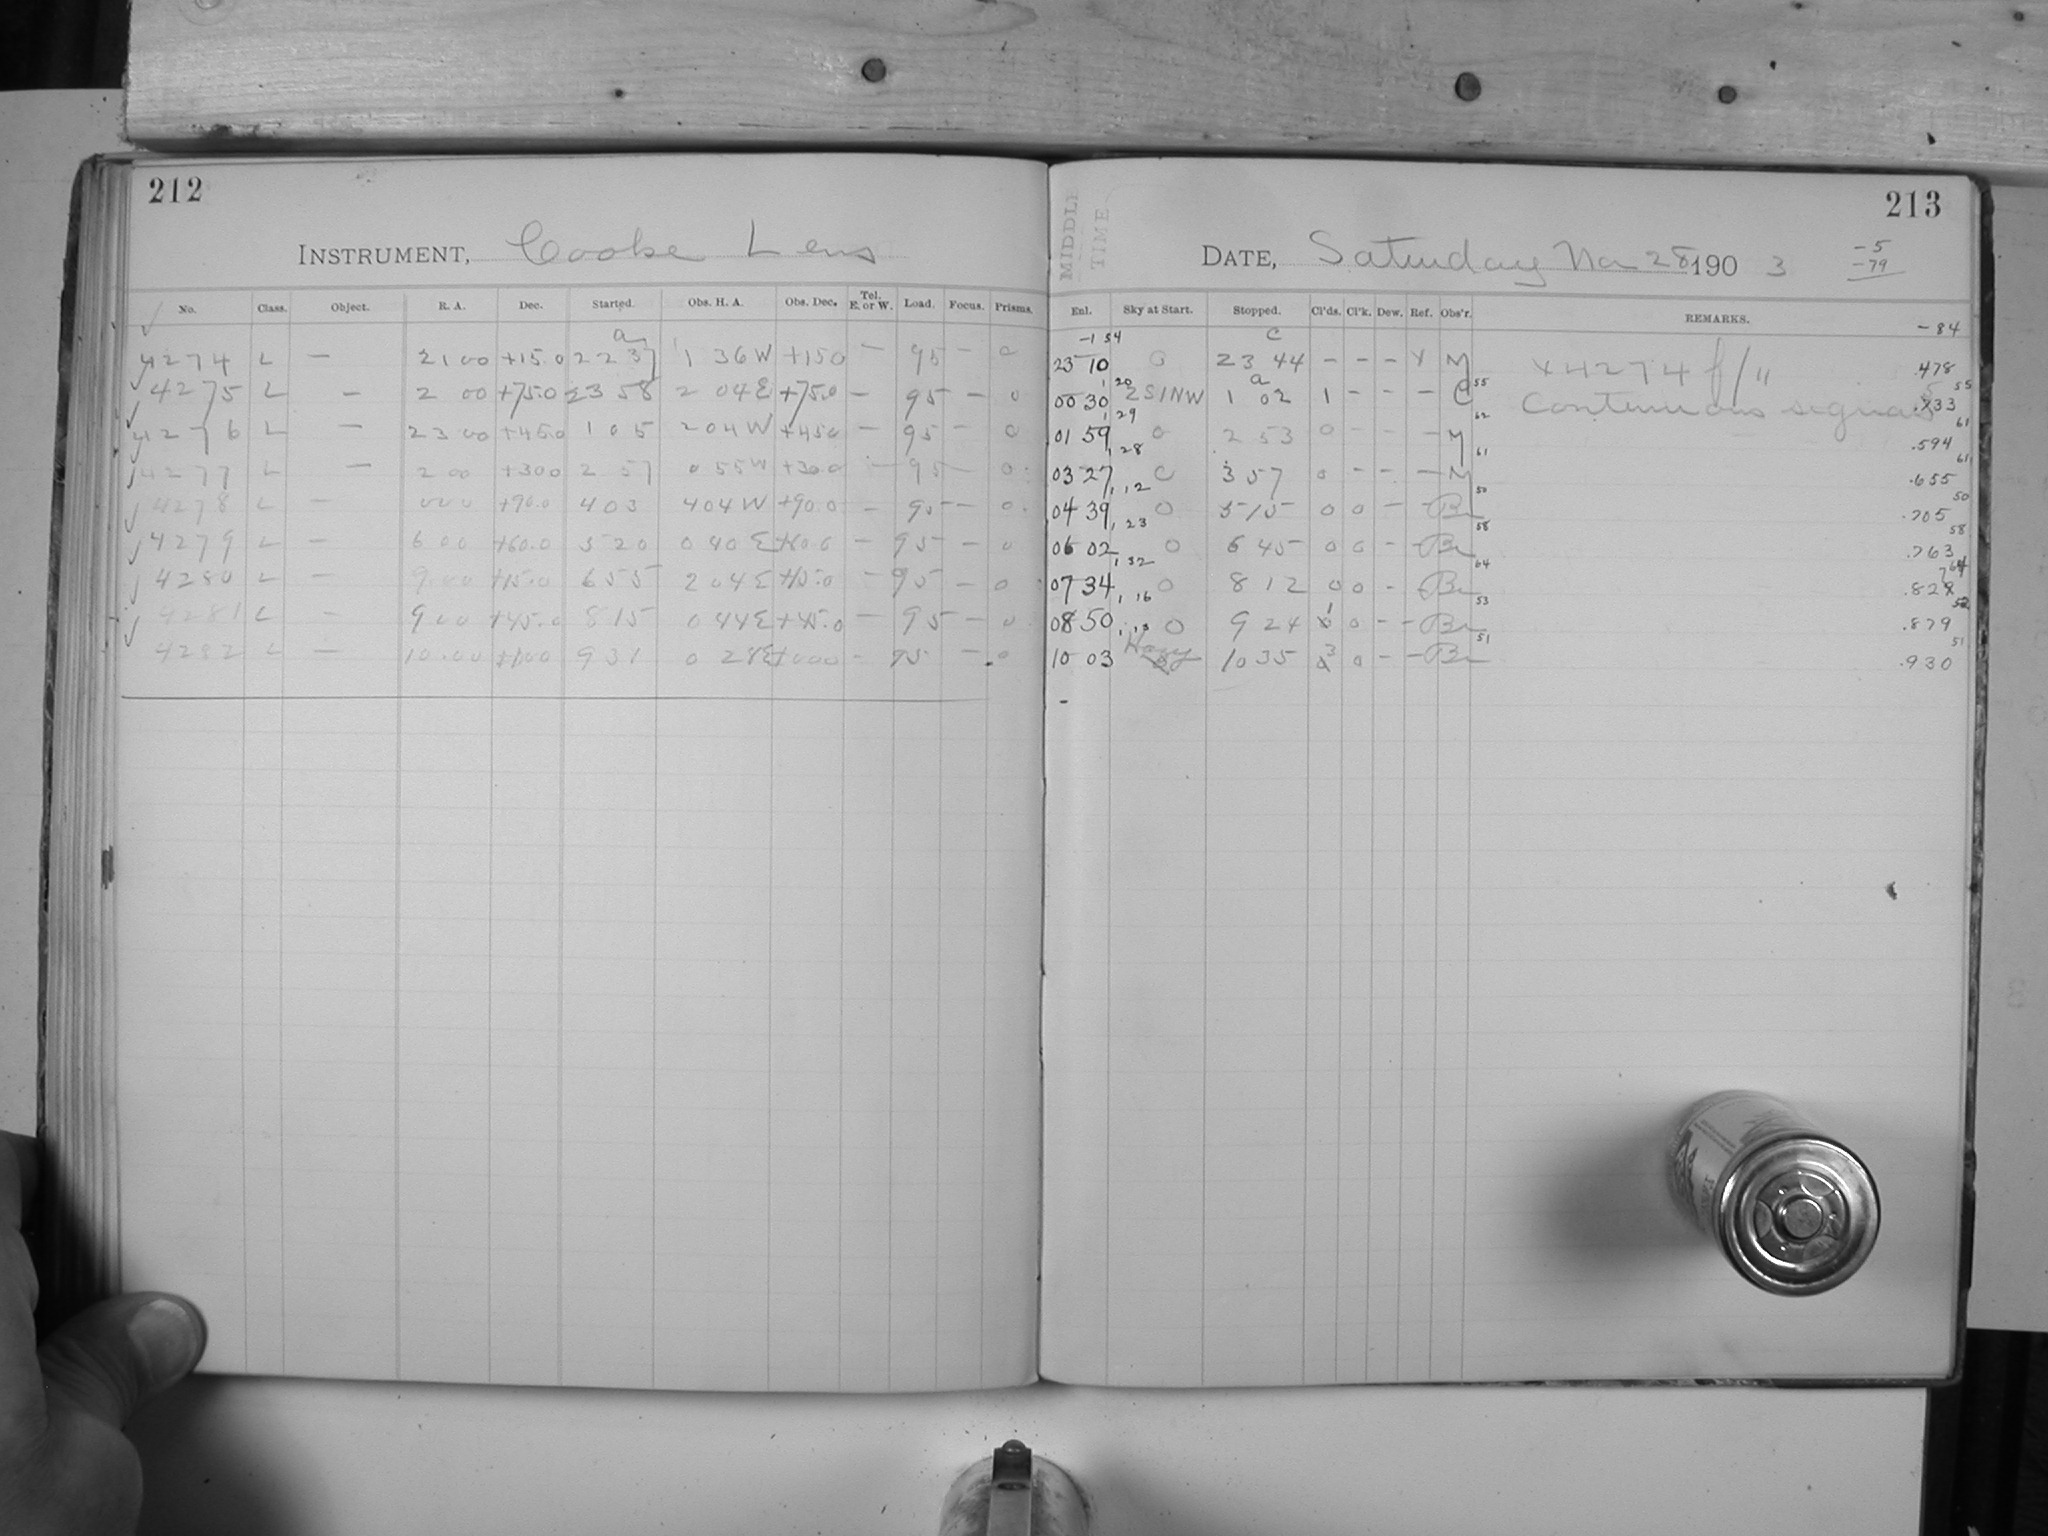 212
INSTRUMENT, Cooke Lens
No. Class. Object. R. A. Dec. Started. Obs. H. A. Obs. Dec. Tel. E. or W. Load. Focus. Prisms.
a
4274 L — 21 00 +15.0 22 37 1 36 W +15 0 — 95 — 0
4275 L — 2 00 +75.0 23 58 2 04 E +75.0 — 95 — 0
4276 L — 23 00 +45.0 1 05 2 04 W +45 0 — 95 — 0
4277 L — 2 00 +30 0 2 57 0 55 W +30.0 — 95 — 0
4278 L — 0 00 +90.0 4 03 4 04 W +90.0 — 95 — 0
4279 L — 6 00 +60.0 5 20 0 40 E +60.0 — 95 — 0
4280 L — 9 00 +15.0 6 55 2 04 E +15.0 — 95 — 0
4281 L — 9 00 +45.0 8 15 0 44 E +45.0 — 95 — 0
4282 L — 10 00 9 31 0 28 E — 95 — 0
213
MIDDLE
TIME
DATE, Saturday Nov 28 190 3
-5
-79
Enl. Sky at Start. Stopped. Cl'ds. Cl'k. Dew. Ref. Obs'r. REMARKS.
-1 54 c -84
23 10 0 23 44 — — — x M x 4274 f/" .478
1 20 a 55 55
00 30 2SINW 1 02 1 — — — C Continuous signals .533
1 29 62 61
01 59 0 2 53 0 — — — M .594
1 28 61 61
03 27 C 3 57 0 — — — M .655
1 12 50 50
04 39 0 5 15 0 0 — — Br .705
1 23 58 58
06 02 0 6 45 0 0 — — Br .763
1 32 64 64
07 34 0 8 12 0 0 — — Br .827
1 16 53 52
08 50 0 9 24 1 0 — — Br .879
1 13 51 51
10 03 Hazy 10 35 3 0 — — Br .930